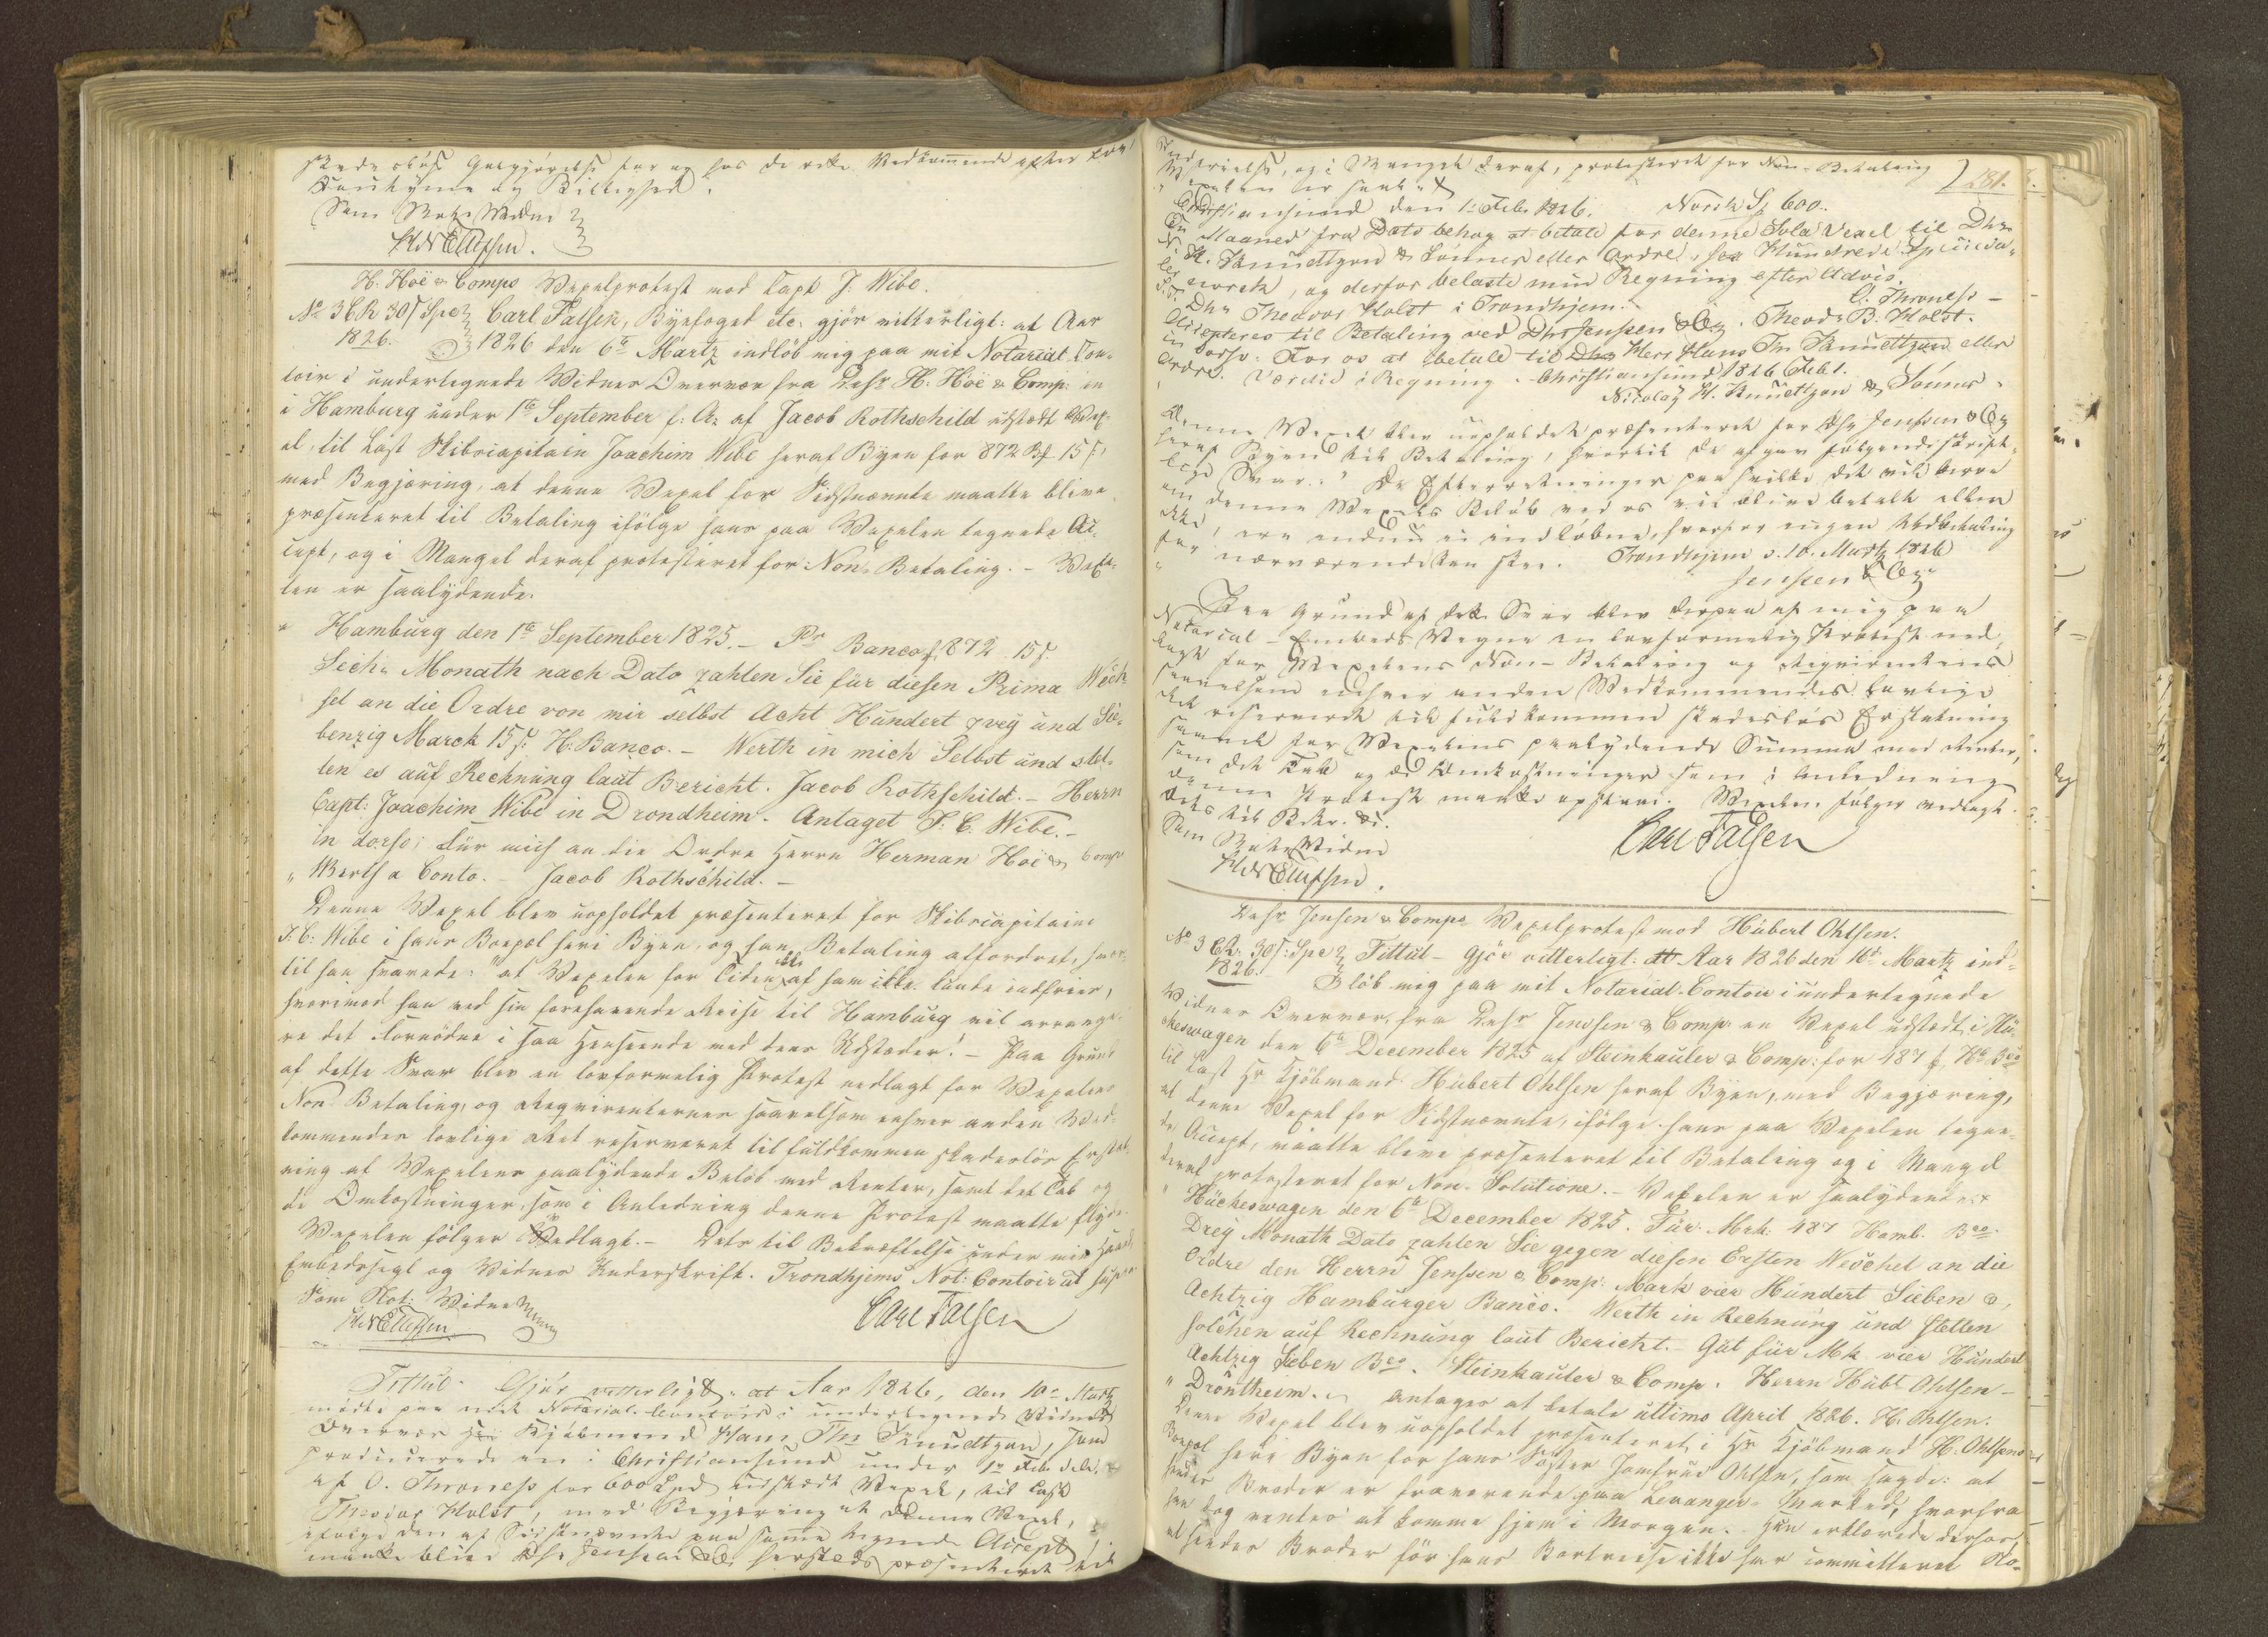 skades løse Gotgjørelse for og hos de rette Vedkommende efter Lov
Kouhyme og Billighed.
Som Notr. Vidne
H. Høë & Comps Vexelprotest mod Capt J. Wibe.
No 36 R 30 s Spec Carl Falsen, Byefoged etc. gjør vitterligt: at Aar
1826. 1826 den 6te Martz indløb mig paa mit Notarial Con-
toir i undertegnede Vidners Overvær fra Dhrr H. Høë & Comp: en
i Hamburg under 1te September f: A: af Jacob Rothschild udstædt Vex-
el, til Last Skibscapitain Joachim Wibe heraf Byen for 872 Bf 15 s,
med Begjæring, at denne Vexel for Sidstnævnte maatte blive
præsenteret til Betaling ifølge hans paa Vexelen tegnede Ac-
cept, og i Mangel deraf protesteret for Non-Betaling. - Vexe-
len er saalydende.
" Hamburg den 1te September 1825. - Pr Banco f 872 15 s.
Sechs Monath nach Dato zahlen Sie für diesen Prima Wech-
sel an die Ordre von mir selbst Acht Hundert zwey und Sie-
benzig Marck 15 s: H. Banco. - Werth in mich Selbst und stel-
len es auf Rechnung laut Bericht. Jacob Rothschild. - Herrn
Capt: Joachim Wibe in Drondheim. Antaget J. C. Wibe. -
in dorso; Für mich an die Ordre Herrn Herman Höë & Comp
" Werth a Conto. - Jacob Rothschild. -
Denne Vexel blev uopholdet præsenteret for Skibscapitaine
J. C: Wibe i hans Boepæl her i Byen, og hans Betaling affordret, hvor-
til han svarede: "at Vexelen for Tiden ikke af ham ikke kunde indfries,
hvorimod han ved sin forehavende Reise til Hamburg vil arrange-
re det fornødne i saa Henseende med dens Udstæder! - Paa Grund
af dette Svar blev en lovformelig Protest nedlagt for Vexelens
Non Betaling, og Reqvirenternes saavelsom enhver anden Ved-
kommendes lovlige Ret reserveret til fuldkommen skadesløs Erstat-
ning af Vexelens paalydende Beløb med Renter, samt det Tab og
de Omkostninger, som i Anledning denne Protest maatte flyde.
Vexelen følger vedlagt. - Dets til Bekræftelse under min Haand,
Embedssegl og Vidnes Underskrift. Trondhjems Not: Contoir ut supra
Som Not: Vidne Carl Falsen
Tittul - Gjør vitterligt: at Aar 1826, den 10de Martz
mødte paa mit Notarial-Contoir i undertegnede Vidnes
Overvær Hr Kjøbmand Hans Ths Knudtzon, som
producerede en i Christiansund under 1te Feb. d. A.
af O. Throness for 600 Spd udstædt Vexel, til Last
Theodor Holst, med Begjæring at denne Vexel,
ifølge den af Sidstnævnte paa samme tegnede Accept
maatte blive Dhr Jenssen & Co hersteds præsenteret til
Indfrielse, og i Mangel deraf, protesteret for Non-Betaling 281.
Vexelen er saalyd
" Christiansund den 1te Feb. 1826. Norsk Sp 600.
En Maaned fra Dato behag at betale for denne Sola Vexel til Dhrr
N. H. Knudtzon & Sönner eller Ordre, sex Hundrede Speciesda-
ler norsk, og derfor belaste min Regning efter Advis.
O. Throness -
S. T. Dhr Theodor Holst i Trondhjem. -
Accepteres til Betaling ved Dhrr Jenssen & Co. Theodr B. Holst.
in dorso. For os at betale til Dhr Herr Hans Ths Knudtzon eller
Ordre. Værdie i Regning. Christiansund 1826 Feb 1.
Nicolay H. Knudtzon & Sönner.
Denne Vexel blev uopholdet præsenteret for Dhr Jenssen & Co
heraf Byen til Betaling, hvortil de afgav følgende skrift-
lige Svar: " De Efterretninger paa hvilke det vil beroe
om denne Vexels Beløb ved os vil blive betalt eller
ikke, ere endnu ei indløbne, hvorfor ingen Udbetaling
" nærværende kan skee. Trondhjem d. 10. Martz 1826
Jenssen & Co
Paa Grund af dette Svar blev derpaa af mig paa
Notarial-Embeds Vegne en lovformelig Protest ned-
lagt for Vexelens Non-Betaling og Reqvirentens
saavelsom enhver anden Vedkommendes lovlige
Ret reserveret til fuldkommen skadesløs Erstatning
saavel for Vexelens paalydende Summa med Renter,
som det Tab og de Omkostninger som i Anledning
denne Protest maatte opstaae. Vexelen følger vedlagt.
Dets til Bekr. &c.
Som Notr Vidne Carl Falsen
Dhrr Jensen & Comps Vexelprotest mod Hübert Ohlsen.
No 3 30 s: Spec Tittul - Gjör vitterligt: at Aar 1826 den 10de Martz ind-
1826. løb mig paa mit Notarial-Contoir i undertegnede
Vidnes Overvær, fra Dhrr Jenssen & Comp: en Vexel udstædt i Hü-
ckeswagen den 6te December 1825 af Steinkauler & Comp: for 487 f Hb Bco
til Last Hr Kjøbmand Hübert Ohlsen heraf Byen, med Begjæring,
at denne Vexel for Sidstnævnte, ifølge hans paa Vexelen tegne-
de Accept, maatte blive præsenteret til Betaling og i Mangel
deraf protesteret for Non-Solutione. - Vexelen er saalydende.
" Hückeswagen den 6te December 1825. Für Mrk: 487 Hamb. Bco
Drey Monath Dato zahlen Sie gegen diesen Ersten Wechel an die
Ordre den Herrn Jenssen & Comp: Mark vier Hundert Sieben &
Achtzig Hamburger Banco. Werth in Rechnung und stellen
solchen auf Rechnung laut Bericht. - Gut für Mk vier Hundert
Achtzig Sieben Bco. Steinkauler & Comp. Herrn Hübt Ohlsen -
" Dröntheim. Antages at betale ultimo April 1826. H. Ohlsen.
Denne Vexel blev uopholdet præsenteret i Hr Kjöbmand H. Ohlsens
Boepæl her i Byen for hans Søster Jomfrue Ohlsen, som sagde: at
hendes Broder er fraværende paa Levanger-Marked, hvorfra
han dog ventes at komme hjem i Morgen. - Hun erklærede derhos
at hendes Broder før hans Bortreise ikke har committeret No-